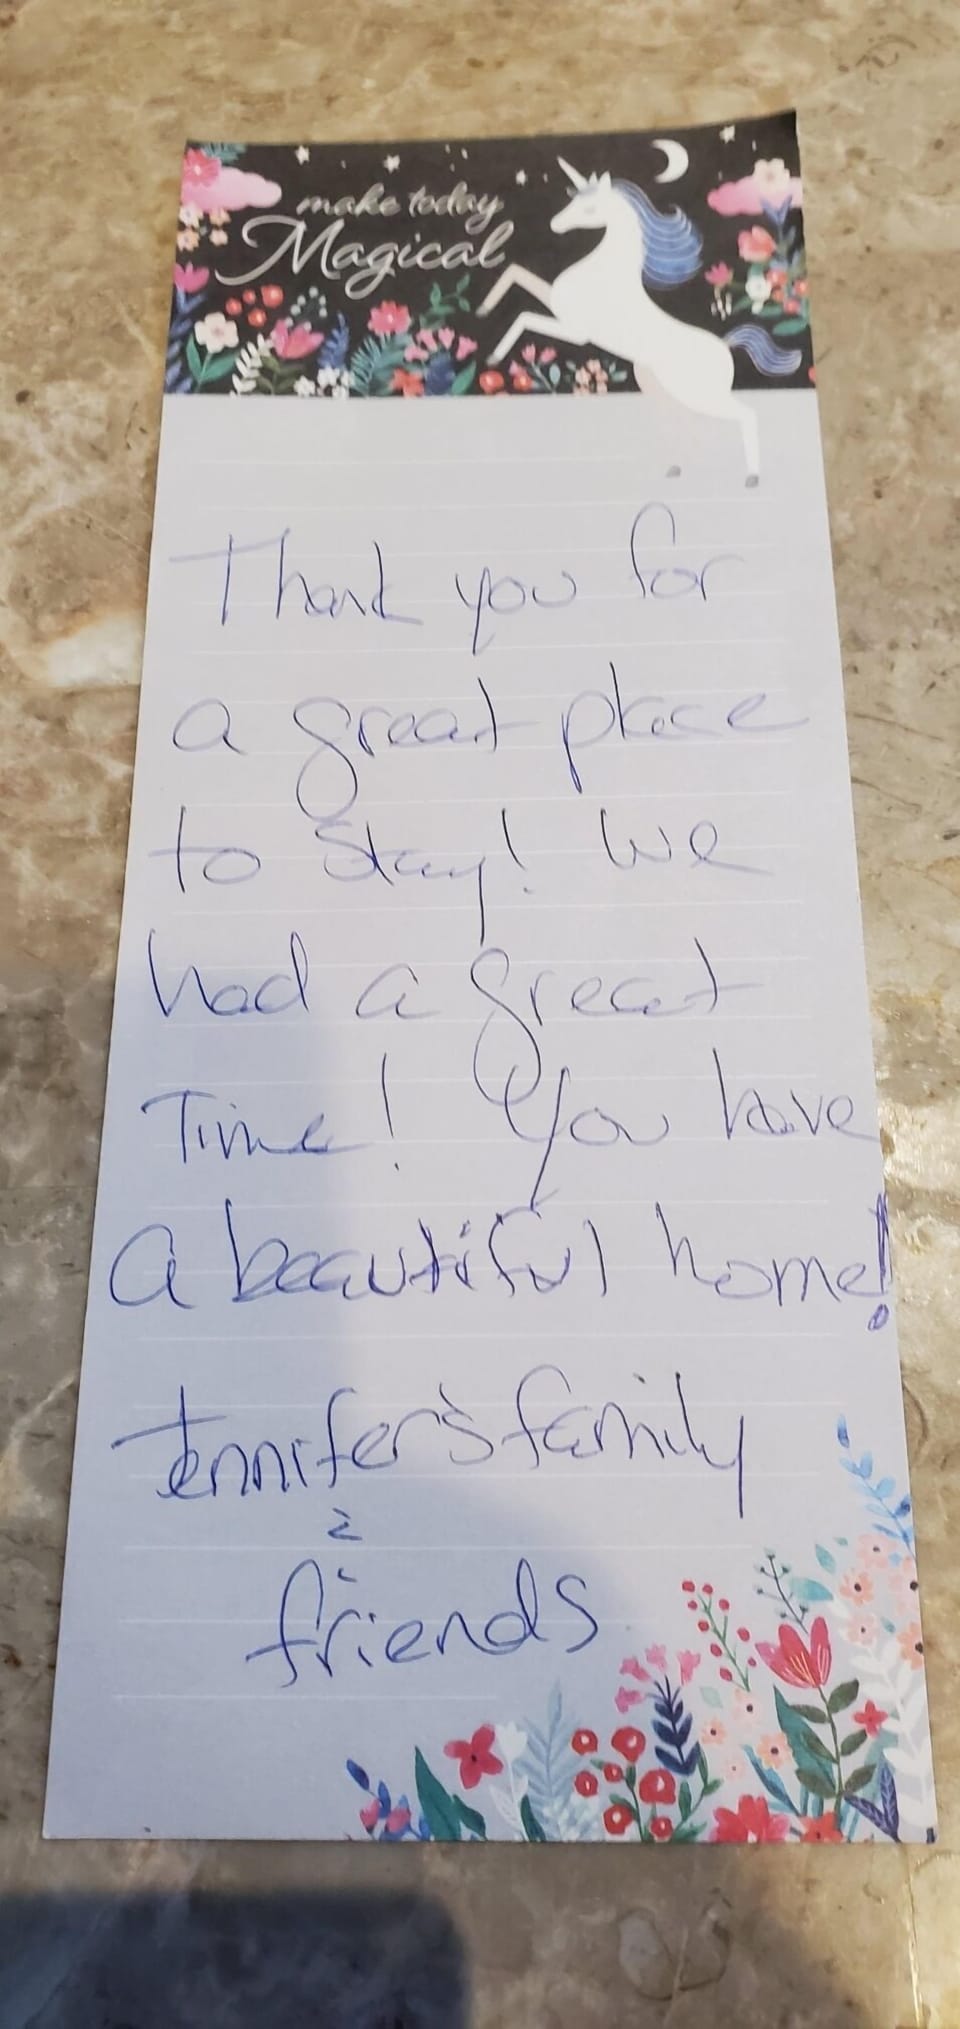 make today
Magical
Thank you for
a great place
to stay! We
had a great
Time! You have
a beautiful home!
Jennifer's family
&
friends